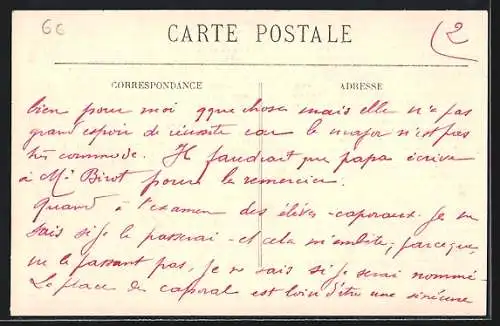 6c
CARTE POSTALE
2
CORRESPONDANCE
ADRESSE
bien pour moi qque chose mais elle n'a pas
grand espoir de réussite car le major n'est pas
très commode. Il faudrait que papa écrive
à Mr Birot pour le remercier.
Quand à l'examen des élèves-caporaux. Je ne
sais si je le passerai - et cela m'embête, parceque,
ne le passant pas, je ne sais si je serai nommé.
La place de caporal est loin d'être une sinécure